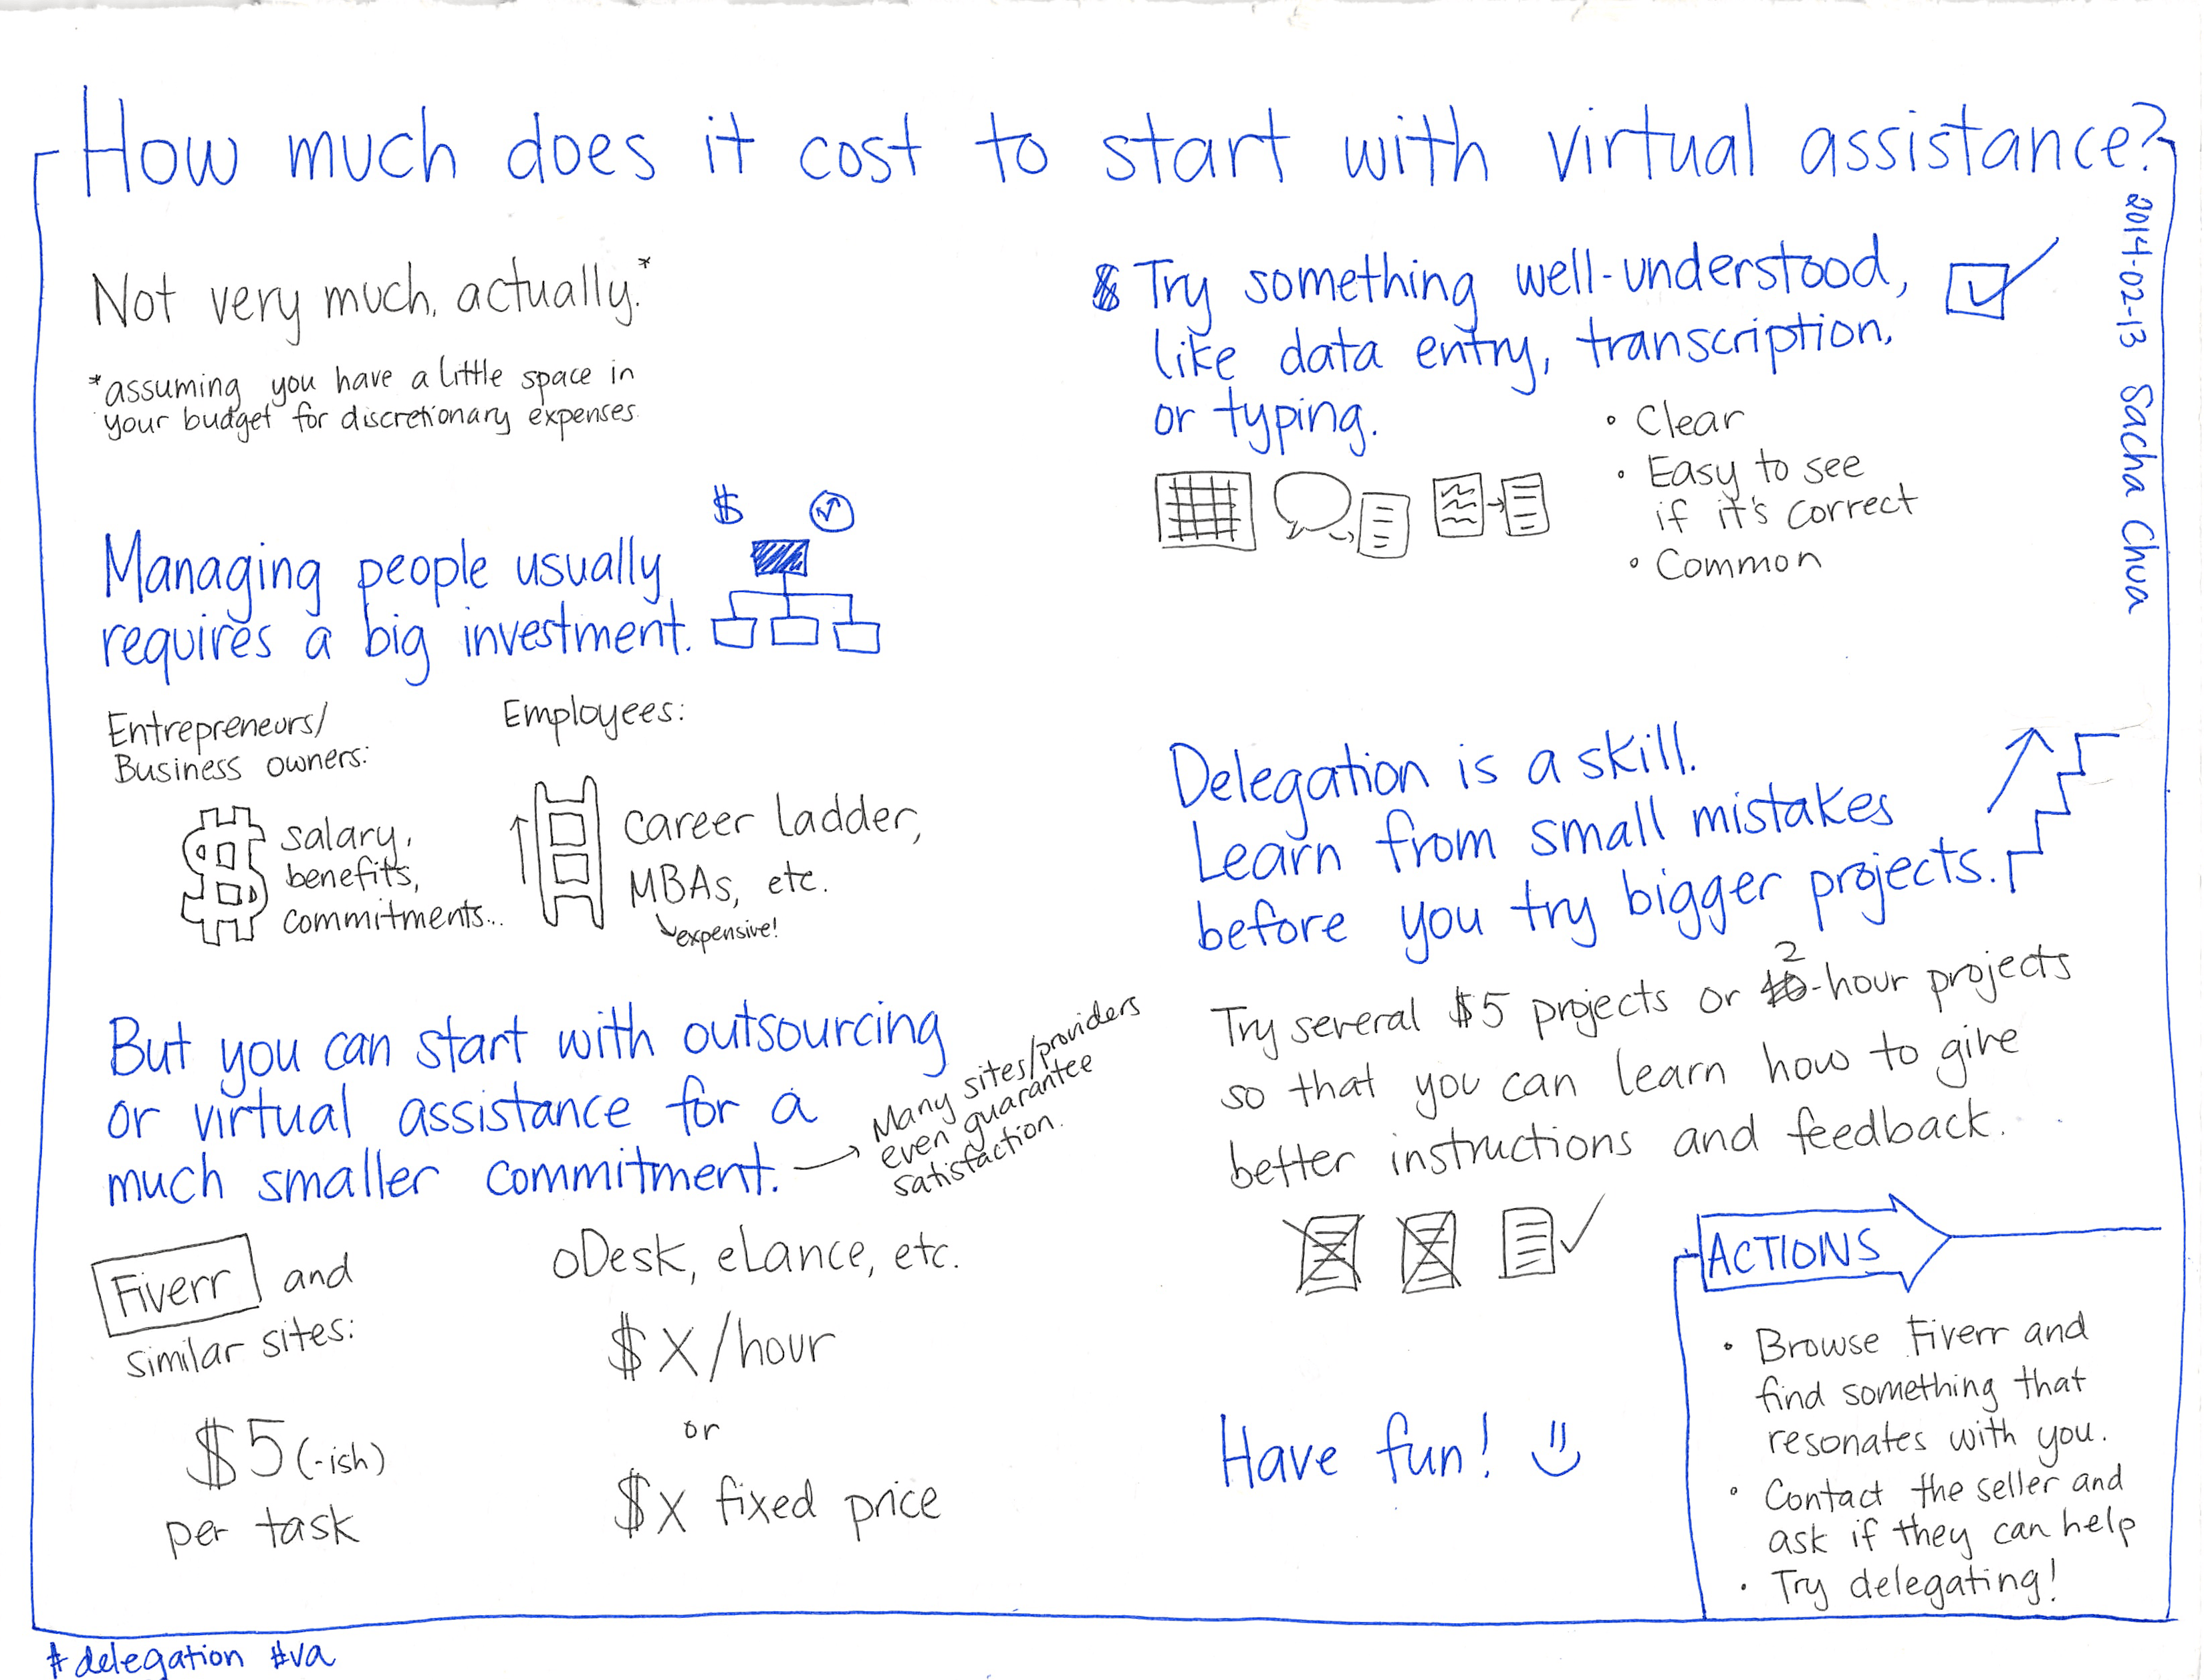 How much does it cost to start with virtual assistance?
2014-02-13 Sacha Chua
Not very much, actually.*
*assuming you have a little space in
your budget for discretionary expenses.
$
Managing people usually
requires a big investment.
Entrepreneurs/
Business owners:
$
salary,
benefits,
commitments...
Employees:
career ladder,
MBAs, etc.
expensive!
But you can start with outsourcing
or virtual assistance for a
much smaller commitment.
Many sites/providers
even guarantee
satisfaction.
Fiverr and
similar sites:
$5 (-ish)
per task
oDesk, eLance, etc.
$X/hour
or
$X fixed price
Try something well-understood,
like data entry, transcription,
or typing.
• Clear
• Easy to see
if it's correct
• Common
Delegation is a skill.
Learn from small mistakes
before you try bigger projects.
Try several $5 projects or 2-hour projects
so that you can learn how to give
better instructions and feedback.
Have fun!
ACTIONS
• Browse Fiverr and
find something that
resonates with you.
• Contact the seller and
ask if they can help
• Try delegating!
#delegation #va